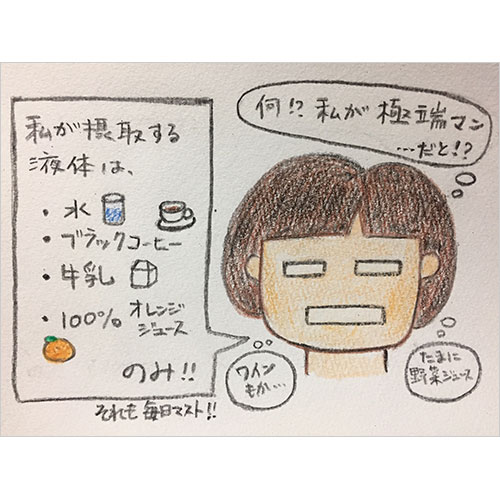 何!? 私が極端マン
…だと!?
私が摂取する
液体は、
・水
・ブラックコーヒー
・牛乳
・100% オレンジ
ジュース
のみ!!
それも毎日マスト!!
ワイン
もか…
たまに
野菜ジュース